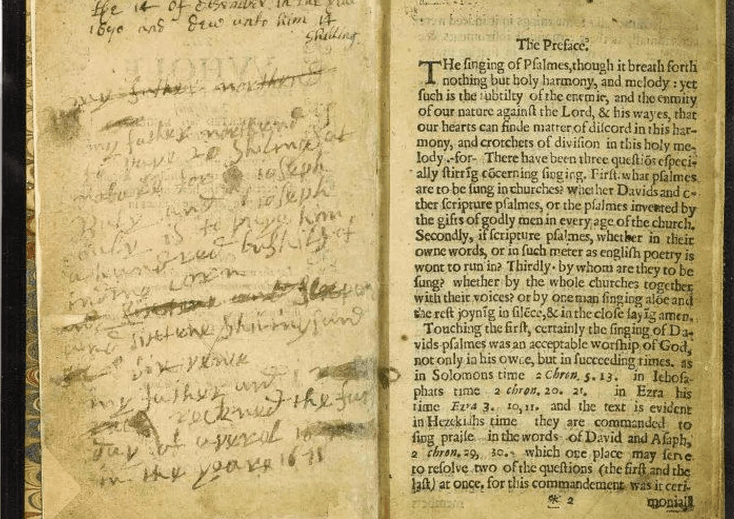 the 14 of desember in the year
1690 and dew unto him 14
shilling
my father northend
my father northend is
to pave 20 shilings at
for Joseph
and Joseph
is to paye him
a hundred bushils of
indian corn
and sixtene shilings and
six pence
my father and I
reckned the fur
day of
in the yeare
The Preface.
THe singing of Psalmes, though it breath forth
nothing but holy harmony, and melody: yet
such is the subtilty of the enemie, and the enmity
of our nature against the Lord, & his wayes, that
our hearts can finde matter of discord in this har-
mony, and crotchets of division in this holy me-
lody.-for- There have been three questiōs especi-
ally stirrīg cōcerning singing. First. what psalmes
are to be sung in churches? whether Davids and o-
ther scripture psalmes, or the psalmes invented by
the gifts of godly men in every age of the church.
Secondly, if scripture psalmes, whether in their
owne words, or in such meter as english poetry is
wont to run in? Thirdly. by whom are they to be
sung? whether by the whole churches together
with their voices? or by one man singing alōe and
the rest joynīg in silēce, & in the close sayīg amen.
Touching the first, certainly the singing of Da-
vids psalmes was an acceptable worship of God,
not only in his owne, but in succeeding times. as
in Solomons time 2 Chron. 5. 13. in Iehosa-
phats time 2 chron. 20. 21. in Ezra his
time Ezra 3. 10, 11. and the text is evident
in Hezekiahs time they are commanded to
sing praise in the words of David and Asaph,
2 chron. 29, 30. which one place may serve
to resolve two of the questions (the first and the
last) at once, for this commandement was it ceri-
* 2 moniall